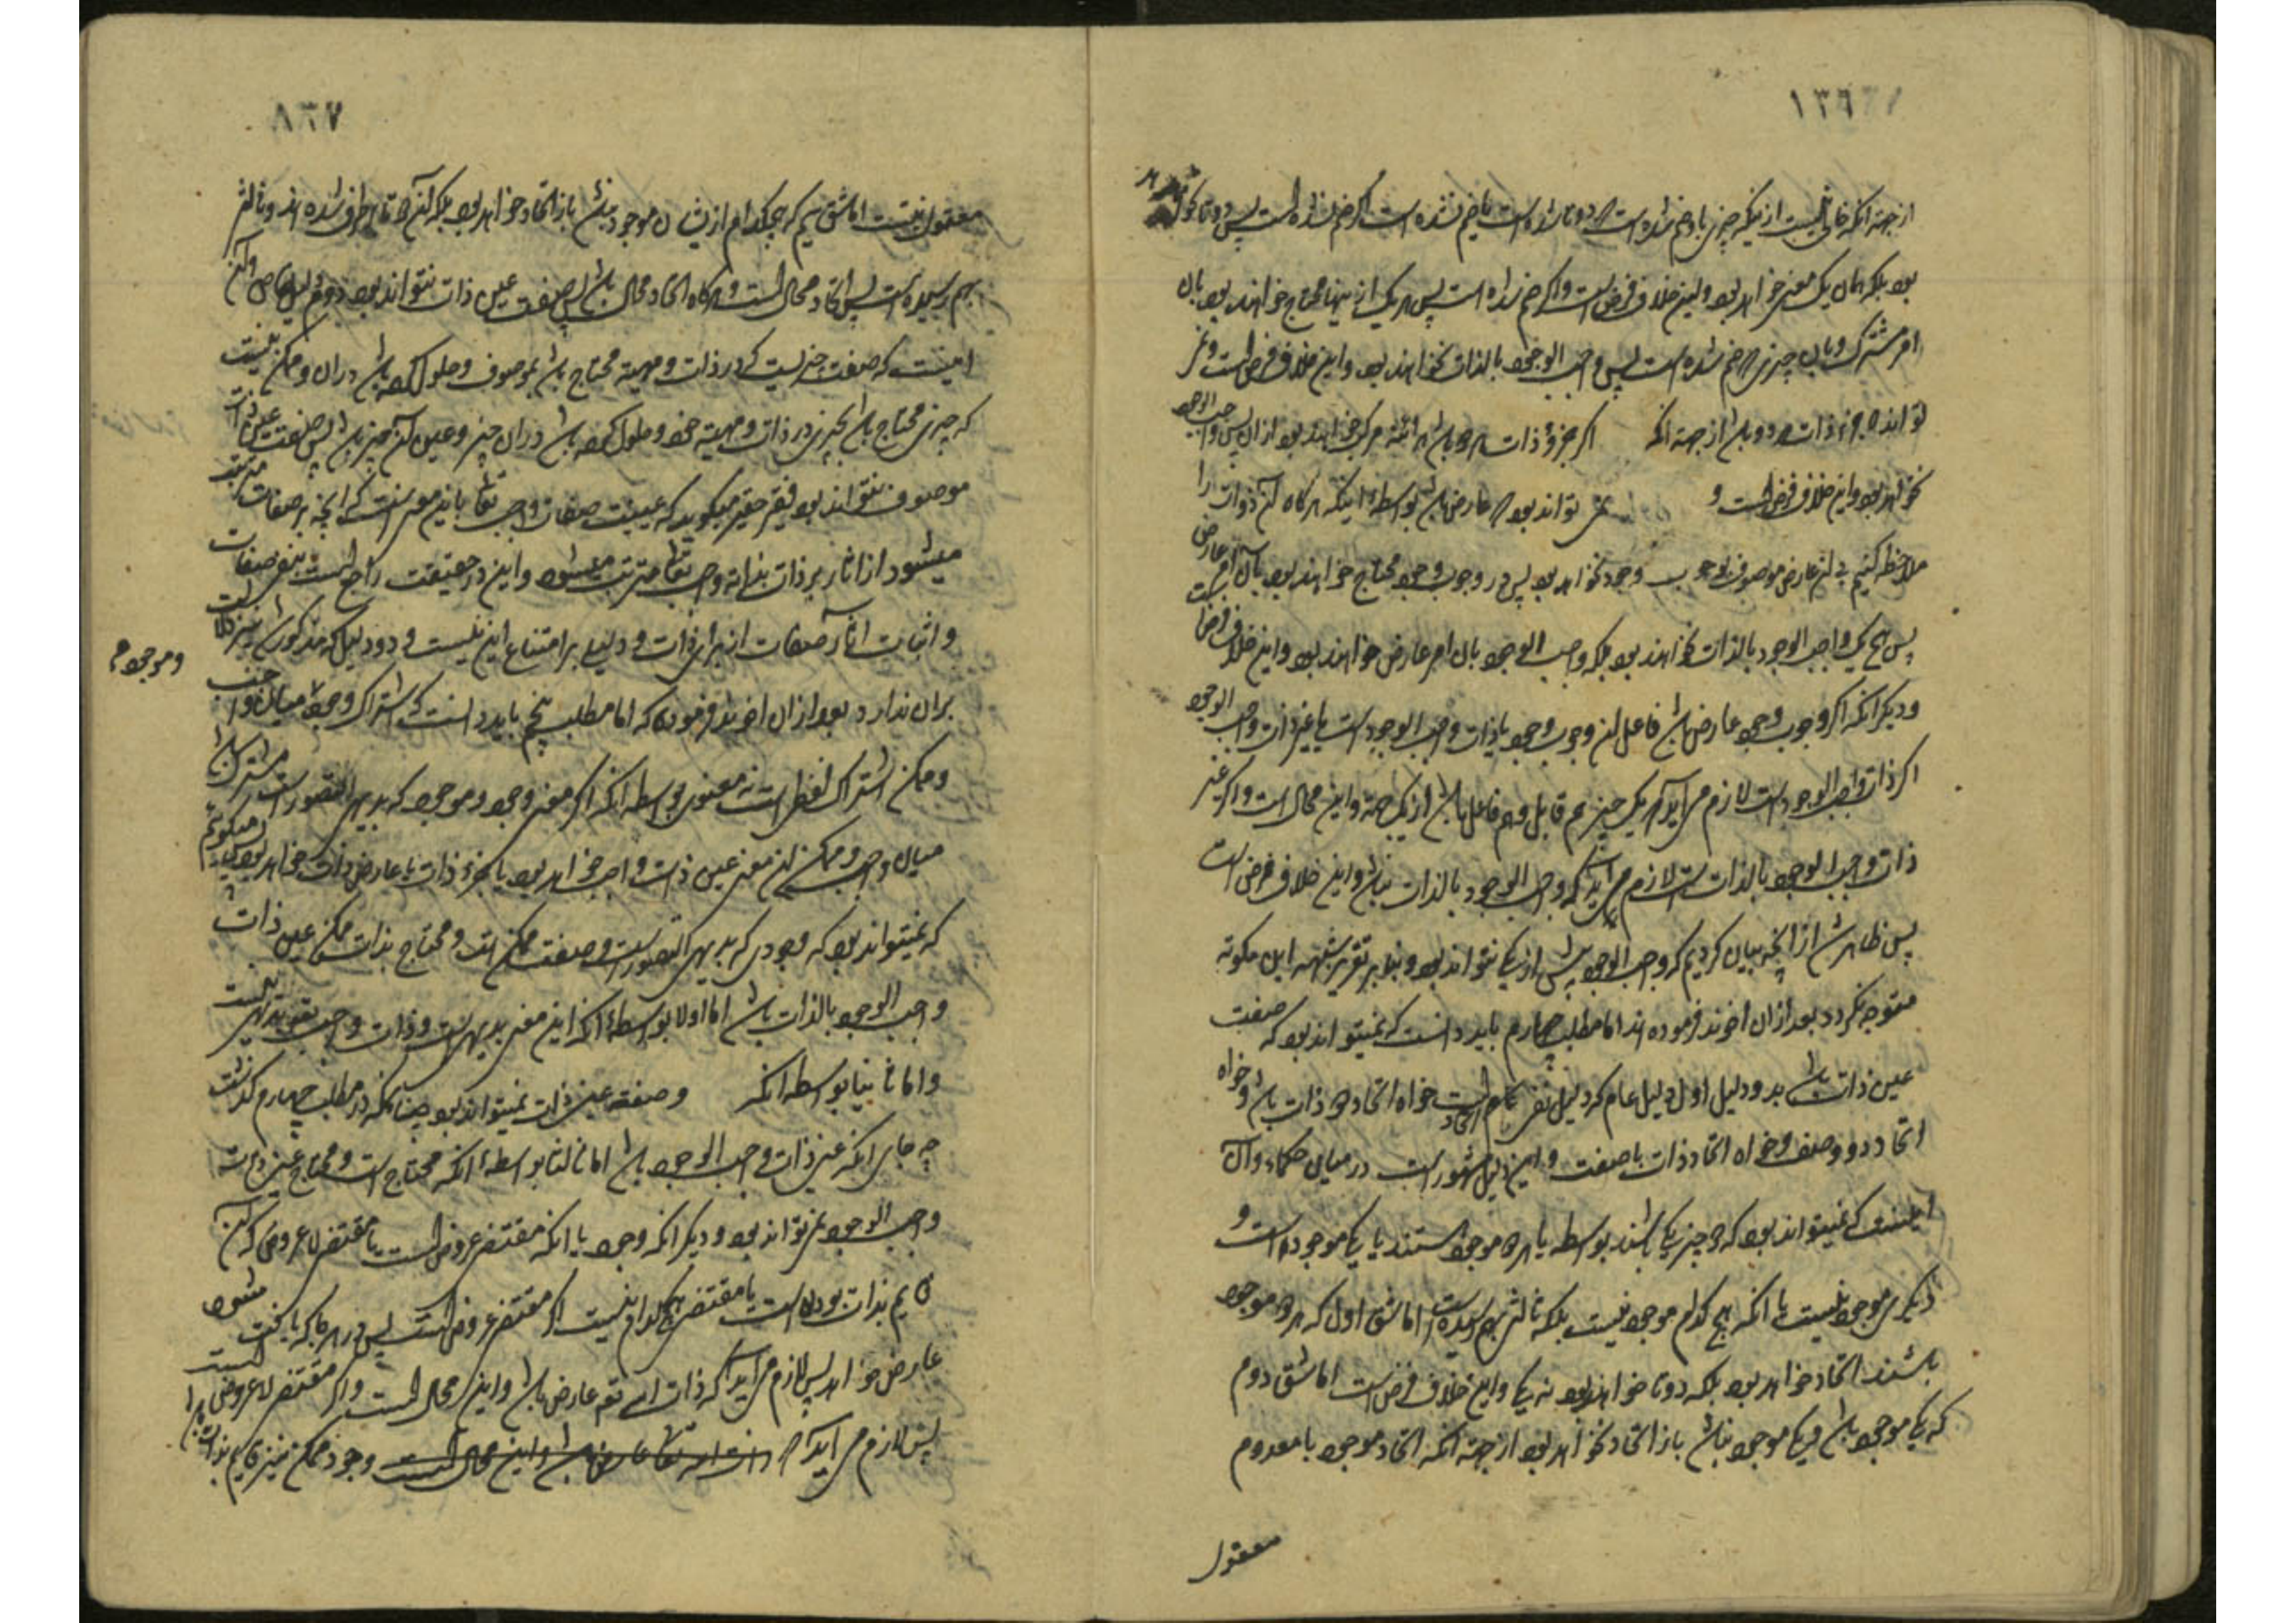 ١٣٦
از جهة انکه خالی نیست از اینکه چیزی با او ضم شده است که دوتا شده است یا ضم نشده است اگر ضم نشده است پس دوتا نخواهد
بود بلکه همان یک معنی خواهد بود و این خلاف فرض است و اگر ضم شده است پس هر یک از اینها محتاج خواهند بود بان
امر مشترک و بان چیزی که ضم شده است پس واجب الوجود بالذات نخواهند بود و این خلاف فرض است و نمی
تواند که جزء ذات هر دو باشد از جهة انکه اگر جزو ذات هر دو باشد هر اینه مرکب خواهند بود از ان پس واجب الوجود
نخواهد بود و این خلاف فرض است و نمی تواند بود که عارض باشد بواسطۀ اینکه هرگاه آن ذوات را
ملاحظه کنیم بی ان عارض موصوف بوجوب وجود نخواهد بود پس در وجوب وجود محتاج خواهند بود بآن امر عارض
پس هیچ یک واجب الوجود بالذات نخواهند بود بلکه واجب الوجود بان امر عارض خواهند بود و این خلاف فرض است
و دیگر انکه اگر وجوب وجود عارض باشد فاعل ان وجوب وجود یا ذات واجب الوجود است یا غیر ذات واجب الوجود
اگر ذات واجب الوجود است لازم می آید که یک چیز هم قابل و هم فاعل باشد از یک جهة و این محال است و اگر غیر
ذات واجب الوجود بالذات است لازم می آید که واجب الوجود بالذات نباشد و این خلاف فرض است
پس ظاهر شد از انچه بیان کردیم که واجب الوجود بیش از یکی نتواند بود و بنابر تقریر شبهه ابن کمونه
متوجه نگردد بعد از ان اخوند فرموده اند اما مطلب چهارم باید دانست که نمیتواند بود که صفت
عین ذات باشد بدو دلیل اول دلیل عام که دلیل نفی اتحاد است خواه اتحاد دو ذات باشد و خواه
اتحاد دو وصف و خواه اتحاد ذات با صفت و این دلیل مشهور است در میان حکماء و آن
اینست که نمیتواند بود که دو چیز یکی باشند بواسطه یا هر دو موجود هستند یا یکی موجود است و
دیگری موجود نیست یا انکه هیچ کدام موجود نیست بلکه ثالثی بهم رسیده است اما شق اول که هر دو موجود
باشند اتحاد نخواهد بود بلکه دوتا خواهند بود نه یکی و این خلاف فرض است اما شق دوم
که یکی موجود باشد و یکی موجود نباشد باز اتحاد نخواهد بود از جهة انکه اتحاد موجود با معدوم
معقول
٨٣٧
معقول نیست اما شق سیم که هیچکدام ازیشان موجود نباشد باز اتحاد نخواهد بود بلکه آن هر دوتا برطرف شده اند و ثالثی
بهم رسیده است پس اتحاد محال است و هرگاه اتحاد محال باشد پس صفت عین ذات نتواند بود دوم دلیل خاص و آن
اینست که صفت چیزیست که در ذات و مهیة محتاج باشد بموصوف و حلول کرده باشد دران و ممکن نیست
که چیزی محتاج باشد بچیزی در ذات و مهیة خود و حلول کرده باشد دران چیز و عین آن چیز باشد پس صفت عین ذات
موصوف نتواند بود فقیر حقیر میگوید که عینیت صفات واجب تعالی باین معنیست که انچه بر صفات مترتب
میشود از اثار بر ذات بذاته واجب تعالی مترتب میشود و این در حقیقت راجع است بنفی صفات
و اثبات اثار آن صفات از برای ذات و دلیلی بر امتناع این نیست و دو دلیل که مذکور شد نیز دلالت
بران ندارد بعد از ان اخوند فرموده که اما مطلب پنجم باید دانست که اشتراک وجود میان واجب
و ممکن اشتراک لفظی است نه معنوی بواسطه انکه اگر معنی وجود و موجود که بدیهی التصور است مشترک باشد
میان واجب و ممکن ان معنی عین ذات واجب خواهد بود یا جزء ذات یا عارض ذات خواهد بود میگوئیم
که نمیتواند بود که وجودی که بدیهی التصور است و صفت ممکن است و محتاج بذات ممکن عین ذات
واجب الوجود بالذات باشد اما اولا بواسطۀ انکه این معنی بدیهی است و ذات واجب تعالی بدیهی نیست
و اما ثانیا بواسطه انکه وصفة عین ذات نمیتواند بود چنانکه در مطلب چهارم گذشت
چه جای انکه عین ذات واجب الوجود باشد اما ثالثا بواسطۀ انکه محتاج است و محتاج عین ذات
واجب الوجود نمی تواند بود و دیگر انکه وجود یا انکه مقتضی عروض است یا مقتضی لا عروض که آن
قایم بذات بودن است یا مقتضی هیچکدام نیست اگر مقتضی عروض است پس در هر جا که یافت شود
عارض خواهد پس لازم می آید که ذات الله تعه عارض باشد و این محال است و اگر مقتضی لا عروض است
پس لازم می آید که ذات الله تعالی عارض باشد و این محال است وجود ممکن نیز قایم بذات باشد
و موجود م